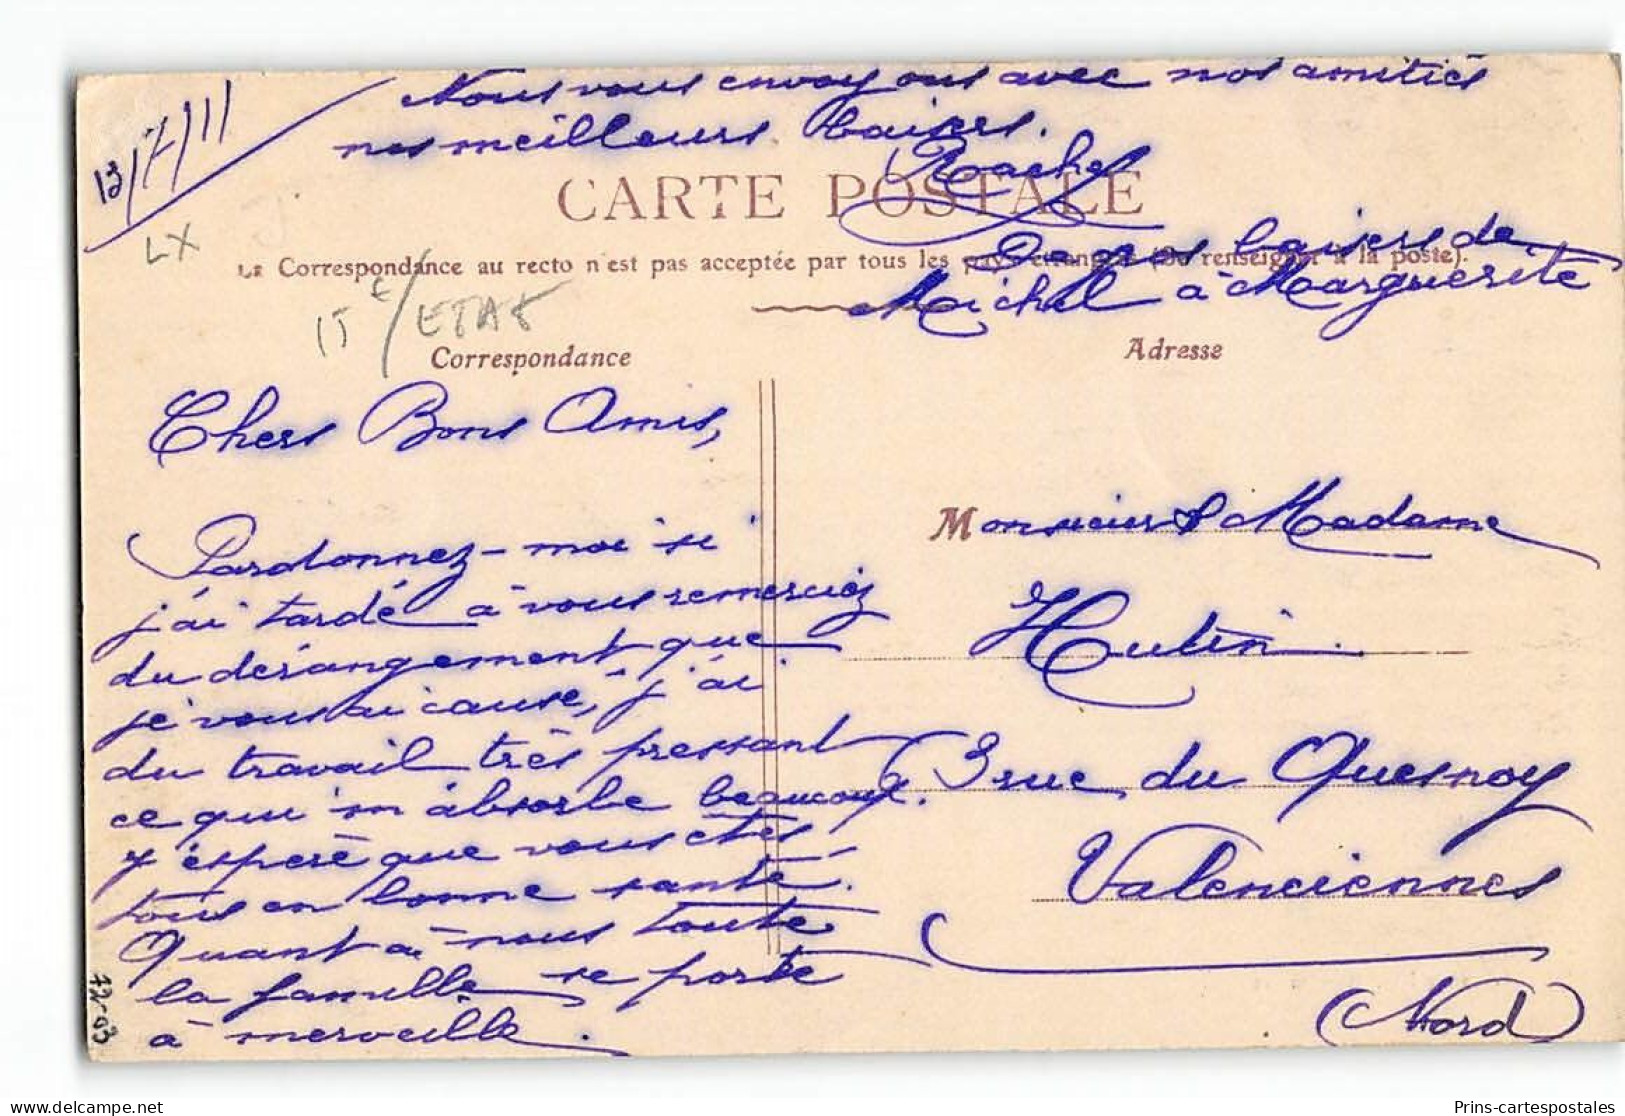 13/7/11
Nous vous envoyons avec nos amitiés
nos meilleurs baisers.
Rachel
CARTE POSTALE
baisers de
Michel à Marguerite
La Correspondance au recto n'est pas acceptée par tous les pays étrangers (Se renseigner à la poste).
LX
15 € / ETAT
Correspondance
Adresse
Chers Bons Amis,
Pardonnez-moi si
j'ai tardé à vous remerciez
du dérangement que
je vous ai causé, j'ai
du travail très pressant
ce qui m'absorbe beaucoup.
J'espère que vous êtes
tous en bonne santé.
Quant à nous toute
la famille se porte
à merveille.
Monsieur & Madame
Hutin
3 rue du Quesnoy
Valenciennes
(Nord)
72-03
delcampe.net
Prins-cartespostales